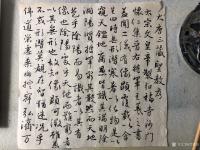 大唐三藏聖教序
太宗文皇帝製弘福寺沙門
懷仁集晉右將軍王羲之書
蓋聞二儀有像顯覆載以
含生四時無形潛寒暑以化物是以
窺天鑑地庸愚皆識其端明陰
洞陽賢哲罕窮其數然而天地
苞乎陰陽而易識者以其有
像也陰陽處乎天地而難窮者
以其無形也故知像顯可徵雖愚
不惑形潛莫覩在智猶迷況乎
佛道崇虛乘幽控寂弘濟萬